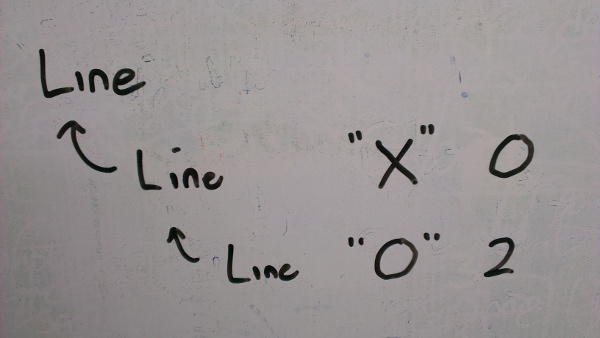 Line
Line "X" 0
Line "O" 2